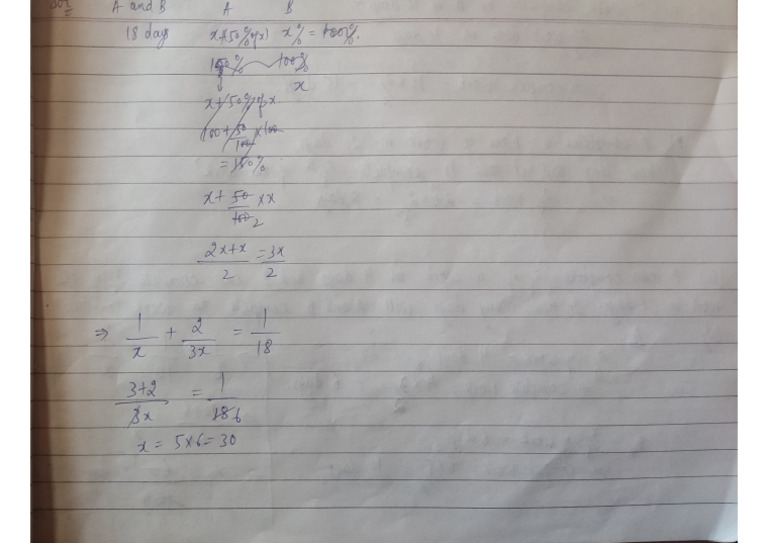 Sol A and B A B
18 days x+(50% of x) x% = 100%.
150% 100%
x
x+50% of x
100+50/100×100
= 150%
x+50/100×x 2
2x+x/2 = 3x/2
⇒ 1/x + 2/3x = 1/18
3+2/3x = 1/18 6
x = 5×6=30